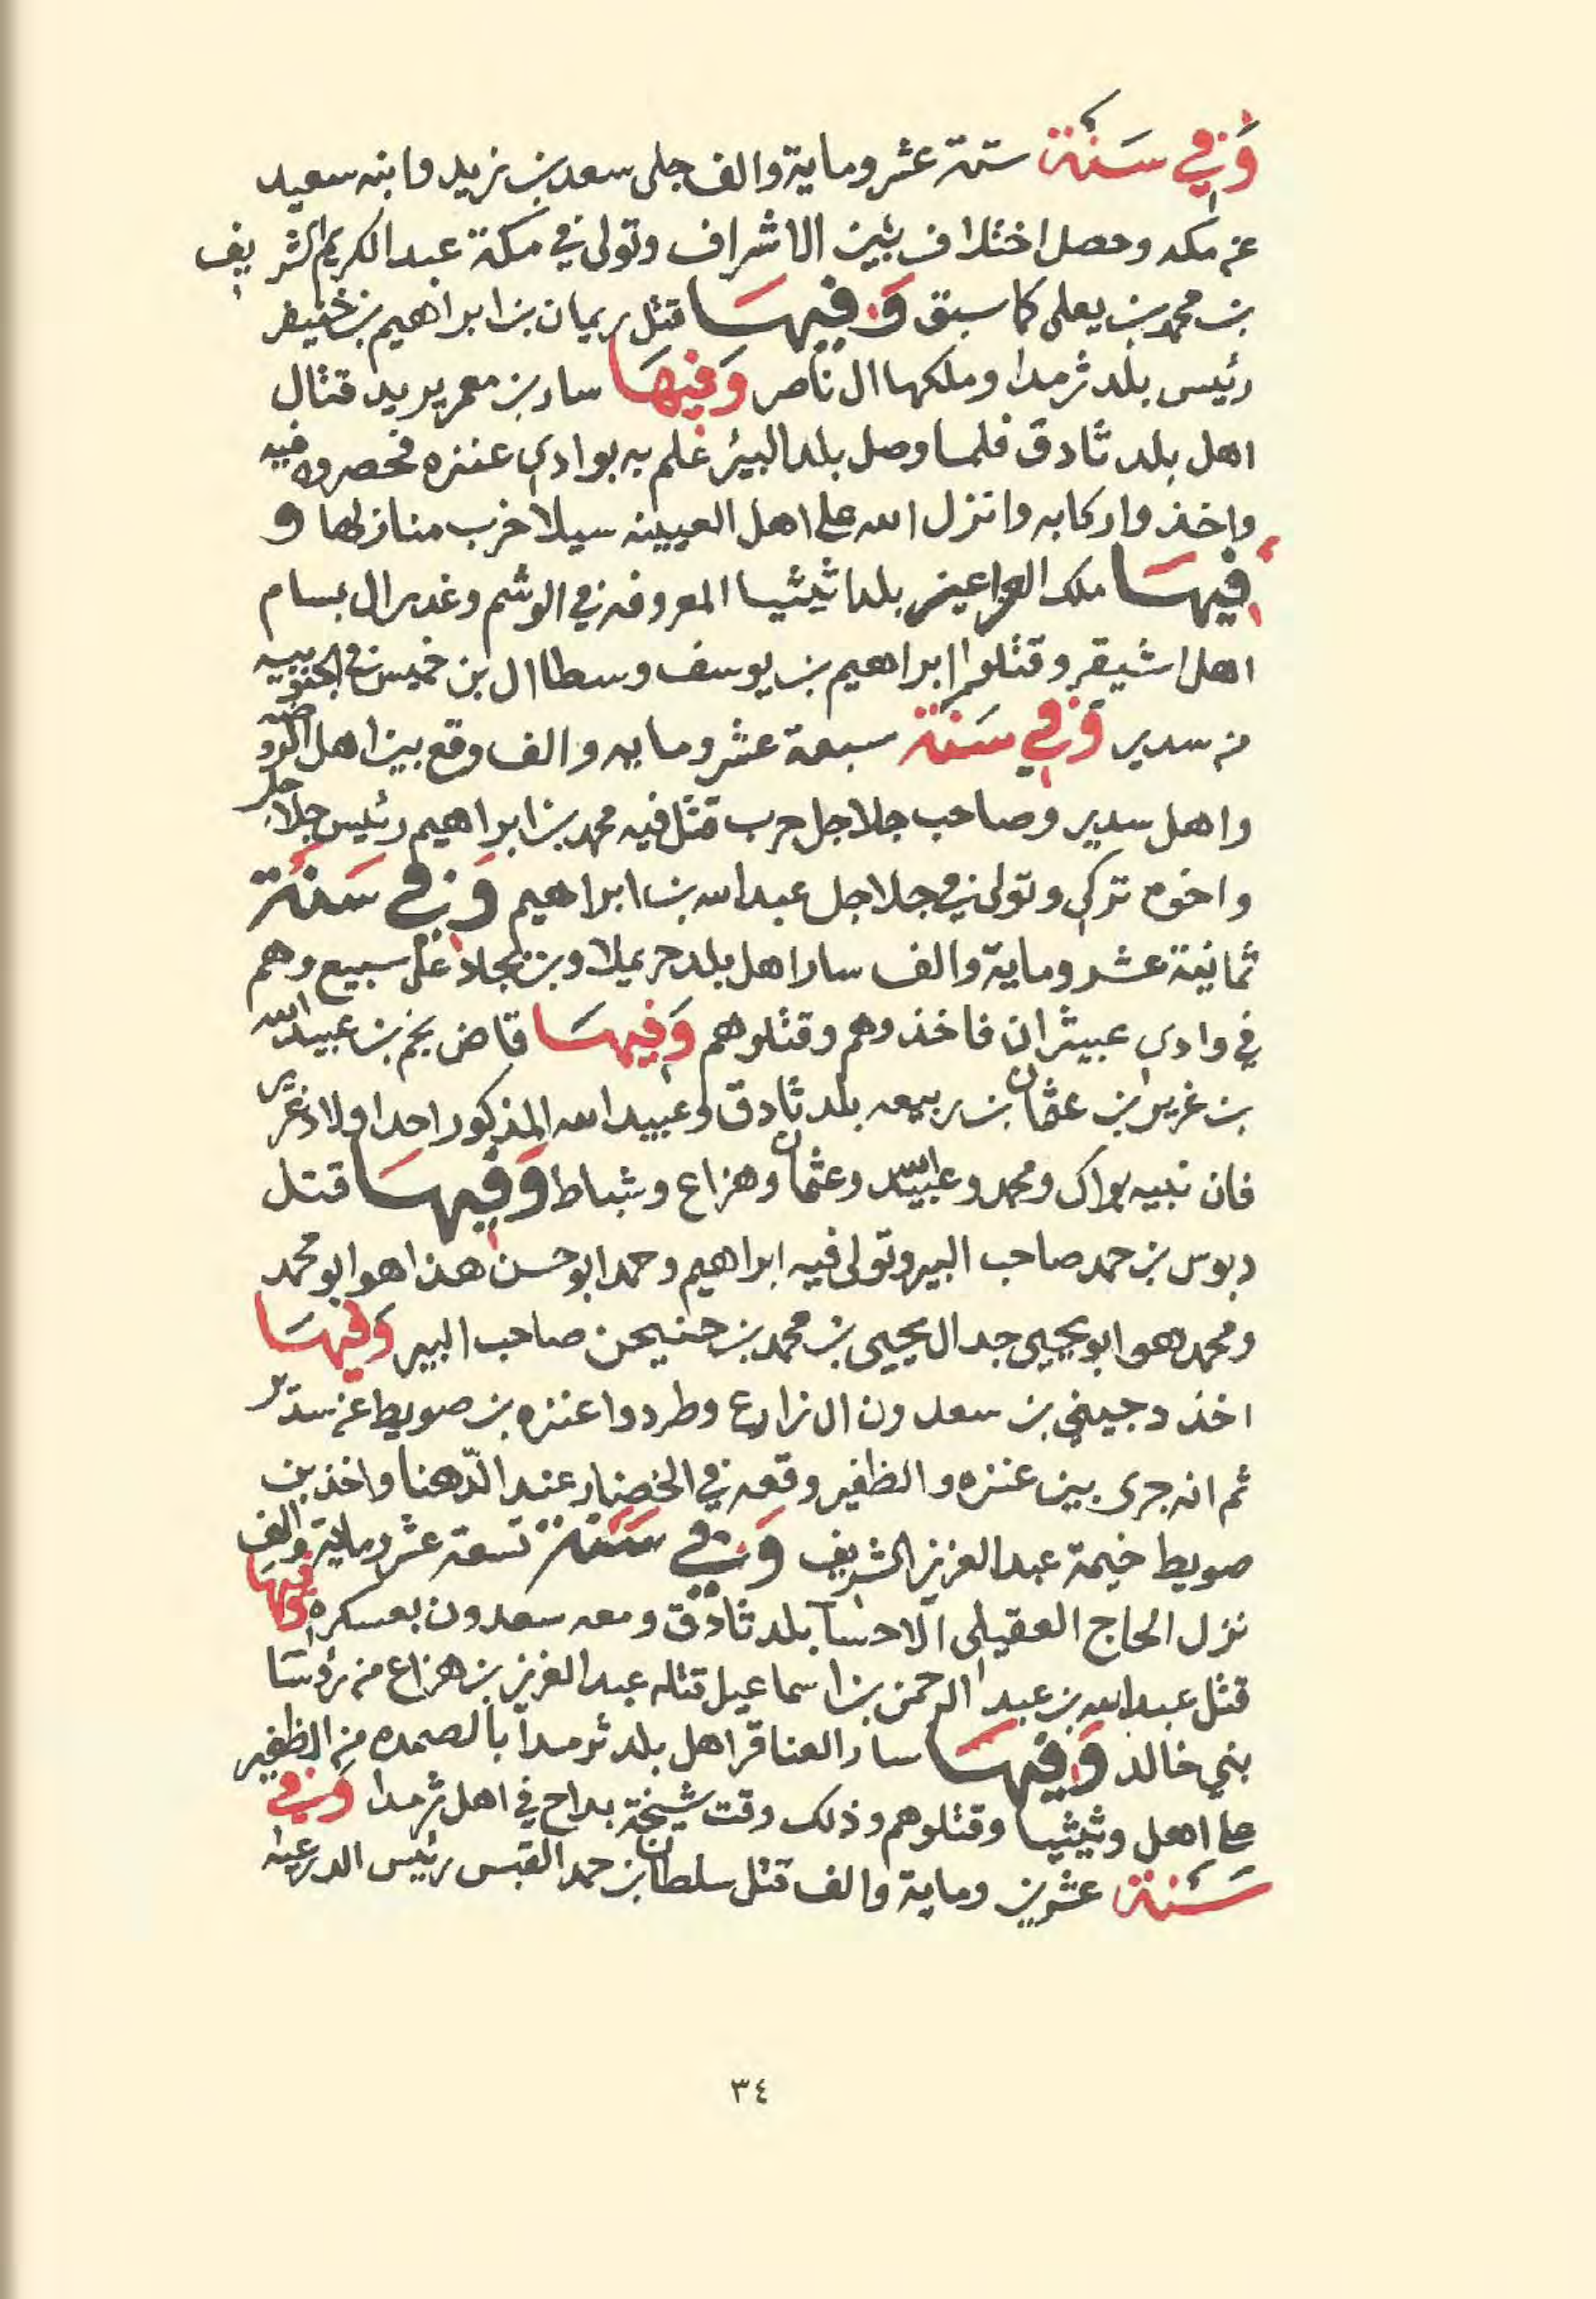 وَفِي سَنَة ستة عشر وماية والف جلى سعد بن زيد وابنه سعيد
عن مكه وحصل اختلاف بين الاشراف وتولى في مكة عبد الكريم الشريف
بن محمد بن يعلى كما سبق وَفِيهَا قتل ريمان بن ابراهيم بن خنيفر
رئيس بلد ثرمدا وملكها ال ناصر وَفِيهَا سار بن معمر يريد قتال
اهل بلد ثادق فلما وصل بلد البير علم به بوادي عنزه فحصروه فيه
واخذوا ركابه وانزل الله على اهل العيينه سيلا خرب منازلها و
فِيهَا ملك العزاعيز بلد اثيثيا المعروفه في الوشم وغدر ال بسام
اهل اشيقر وقتلوا ابراهيم بن يوسف وسطا ال بن خميس في الجنوبيه
من سدير وَفِي سَنَة سبعة عشر ومايه والف وقع بين اهل الروضه
واهل سدير وصاحب جلاجل حرب قتل فيه محمد بن ابراهيم رئيس جلاجل
واخوه تركي وتولى في جلاجل عبد الله بن ابراهيم وَفِي سَنَة
ثمانية عشر وماية والف سار اهل بلد حريملا وبن بجلاد على سبيع وهم
في وادي عبيثران فاخذوهم وقتلوهم وَفِيهَا قاض نجم بن عبيد الله
بن غرير بن عثمان بن ربيعه بلد ثادق وعبيد الله المذكور احد اولاد غرير
فان نبيه براك ومحمد وعبيد الله وعثمان وهزاع وشباط وَفِيهَا قتل
دبوس بن حمد صاحب البير وتولى فيه ابراهيم وحمد ابو حسن هذا هو ابو محمد
ومحمد هو ابو يحيى جد ال يحيى بن محمد بن حنيحن صاحب البير وَفِيهَا
اخذ دجيني بن سعدون ال زارع وطردوا عنزه بن صويط عن سدير
ثم انه جرى بين عنزه والظفير وقعه في الخضار عند الدّهنا واخذ بن
صويط خيمة عبد العزيز الشريف وَفِي سَنَة تسعة عشر وماية والف
نزل الحاج العقيلي الاحسآ بلد ثادق ومعه سعدون بعسكره وَفِيهَا
قتل عبد الله بن عبد الرحمن بن اسماعيل قتله عبد العزيز بن هزاع من رؤسا
بني خالد وَفِيهَا سار العناقر اهل بلد ثرمدا بالصمده من الظفير
على اهل وثيثيا وقتلوهم وذلك وقت شيخة بداح في اهل ثرمدا وَفِي
سَنَة عشرين وماية والف قتل سلطان بن حمد القبس رئيس الدرعيه
٣٤